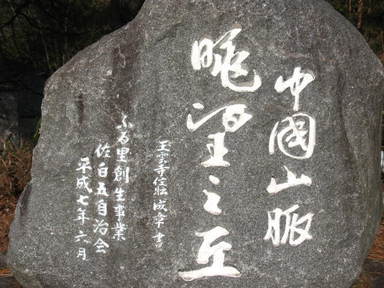 中國山脈
眺望之丘
玉雲寺 成章書
ふる里創生事業
佐白五自治会
平成七年六月